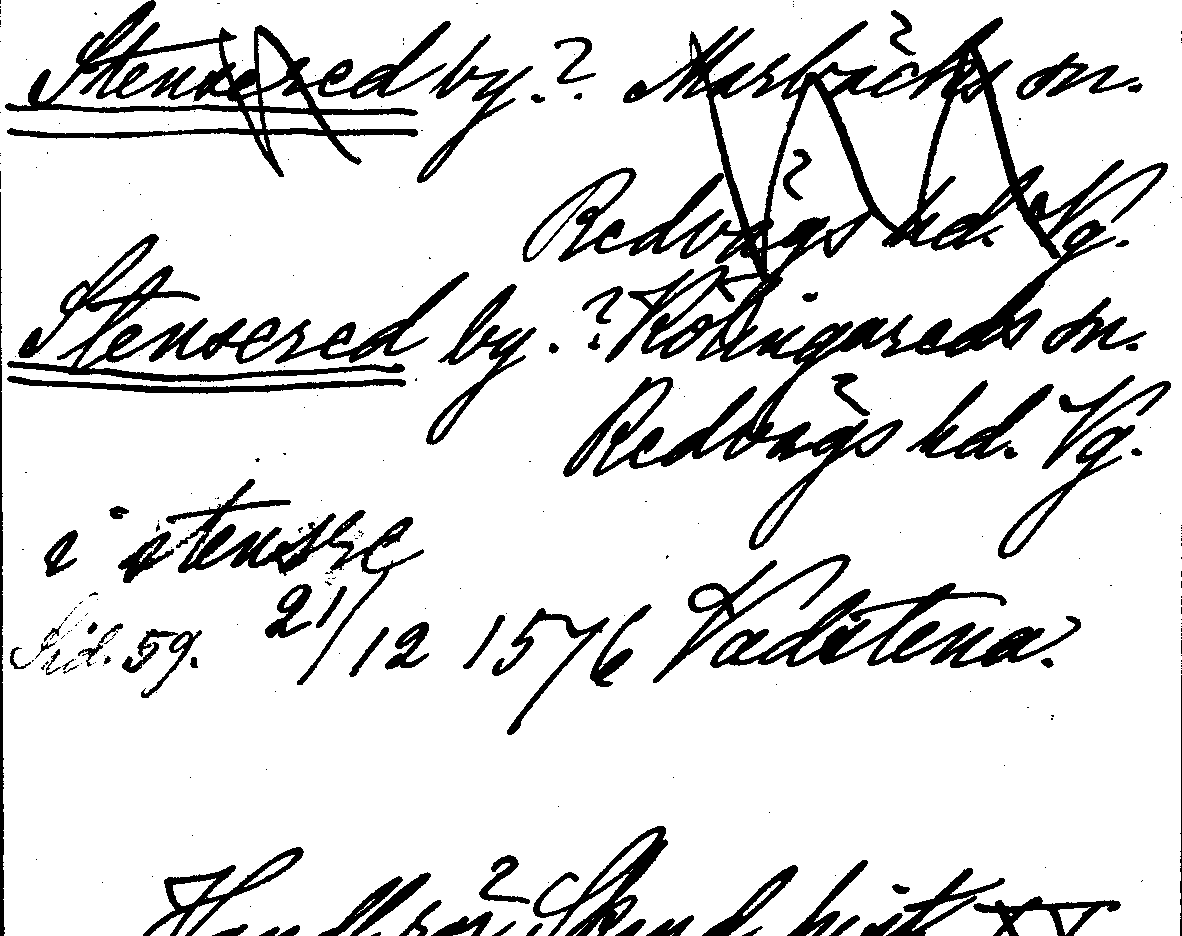 Stensered by.? Marbäcks sn.
Redvägs hd. Vg.
Stensered by. ? Kölingareds sn.
Redvägs hd. Vg.
i stensre
Sid. 59. 21/12 1576 Vadstena.
Handl. rör. Skand. hist. XV